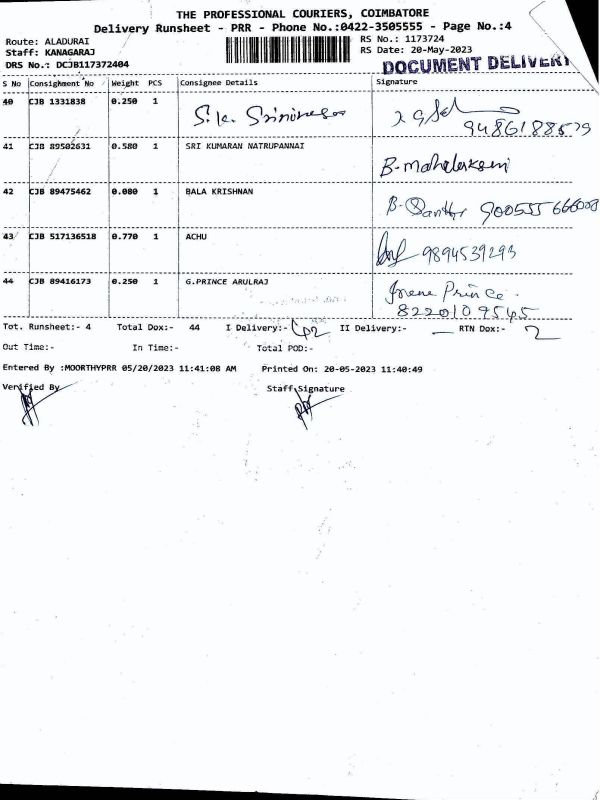 THE PROFESSIONAL COURIERS, COIMBATORE
Delivery Runsheet - PRR - Phone No.:0422-3505555 - Page No.:4
Route: ALADURAI
RS No.: 1173724
Staff: KANAGARAJ
RS Date: 20-May-2023
DRS No.: DCJB117372404
DOCUMENT DELIVERY
S No Consignment No Weight PCS Consignee Details Signature
40 CJB 1331838 0.250 1 S.K. Srinivasan
9486188579
41 CJB 89502631 0.580 1 SRI KUMARAN NATRUPANNAI
B-Mahalakshmi
42 CJB 89475462 0.080 1 BALA KRISHNAN
B-
43 CJB 517136518 0.770 1 ACHU
9894539293
44 CJB 89416173 0.250 1 G.PRINCE ARULRAJ
Irene Prince.
8220109545
Tot. Runsheet:- 4 Total Dox:- 44 I Delivery:- II Delivery:- — RTN Dox:- 2
Out Time:- In Time:- Total POD:-
Entered By :MOORTHYPRR 05/20/2023 11:41:08 AM Printed On: 20-05-2023 11:40:49
Verified By Staff Signature